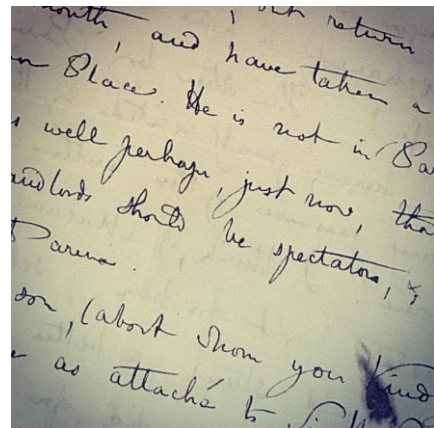 but return
month, and have taken a
Place. He is not in
well perhaps, just now,
should be spectators, &
son, (about whom you kind
as attaché to